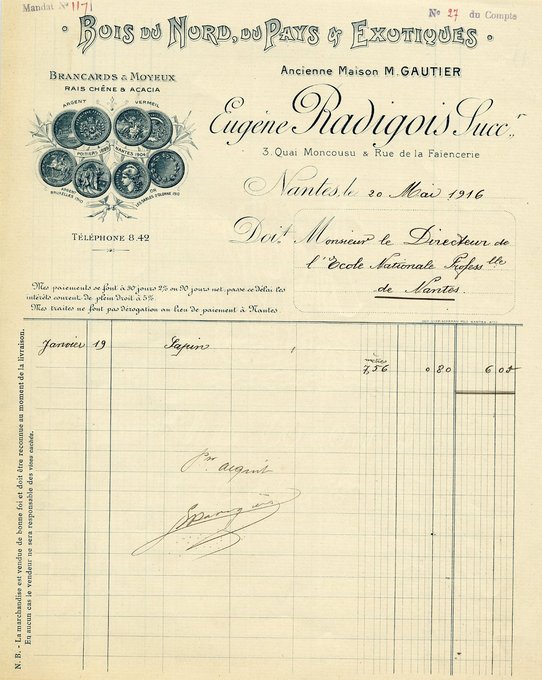 Mandat N° 1171
N° 27 du Compte
BOIS DU NORD, DU PAYS & EXOTIQUES
BRANCARDS & MOYEUX
RAIS CHÊNE & ACACIA
ARGENT VERMEIL
POITIERS 1899 NANTES 1904
ARGENT BRUXELLES 1910
OR LES SABLES D'OLONNE 1910
TÉLÉPHONE 8.42
Ancienne Maison M. GAUTIER
Eugène Radigois Succr
3. Quai Moncousu & Rue de la Faïencerie
Nantes, le 20 Mai 1916
Doit Monsieur le Directeur de
l'Ecole Nationale Profess lle
de Nantes.
Mes paiements se font à 30 jours 2% ou 90 jours net, passé ce délai les
intérêts courent de plein droit à 5%
Mes traites ne font pas dérogation au lieu de paiement à Nantes
Janvier 19 Sapin
mètres
7,56 0.80 6.05
Pr acquit
N. B. - La marchandise est vendue de bonne foi et doit être reconnue au moment de la livraison.
En aucun cas le vendeur ne sera responsable des vices cachés.